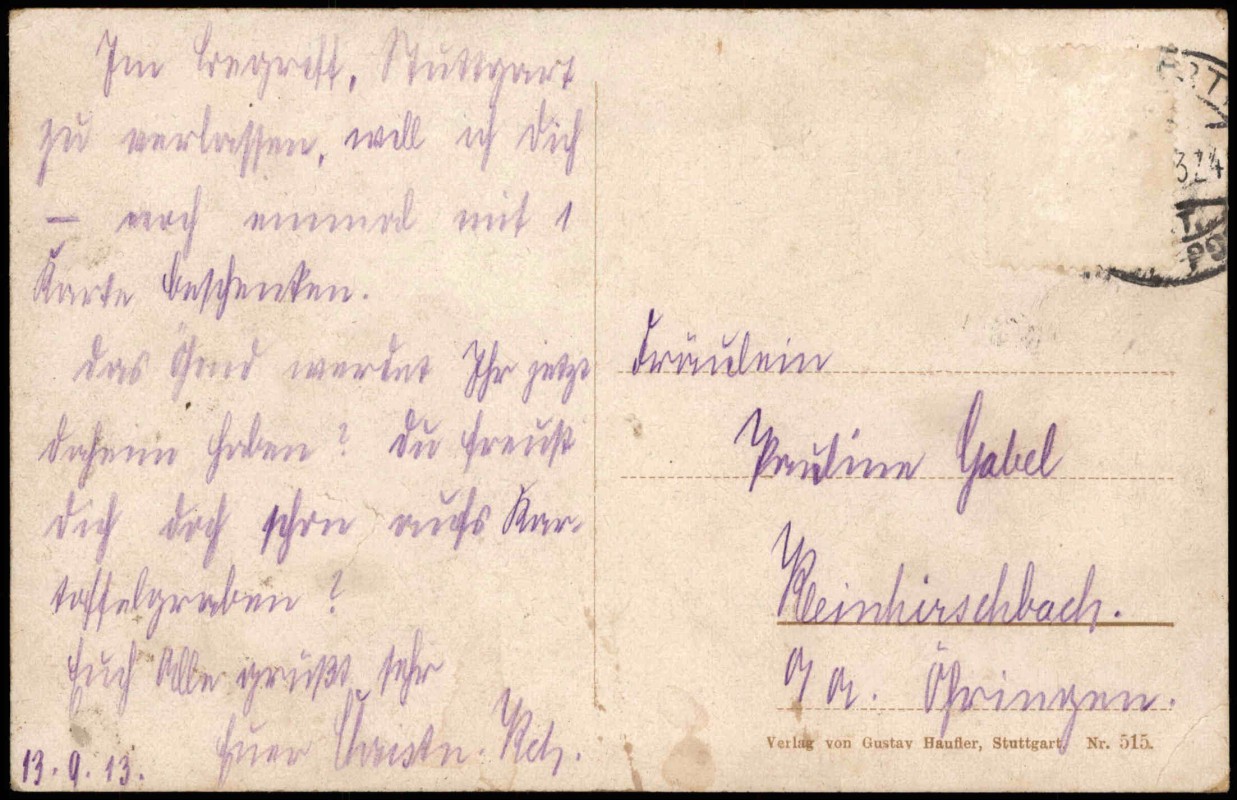 Im Begriff, Stuttgart
zu verlassen, will ich dich
— noch einmal mit 1
Karte beschenken.
Das Öhmd werdet Ihr jetzt
daheim haben? Du freust
dich doch schon aufs Kar-
toffelgraben?
Euch Alle grüßt sehr
Euer
13.9.13.
Fräulein
Pauline Gabel
Kleinhirschbach.
O A. Öhringen.
Verlag von Gustav Haufler, Stuttgart. Nr. 515.